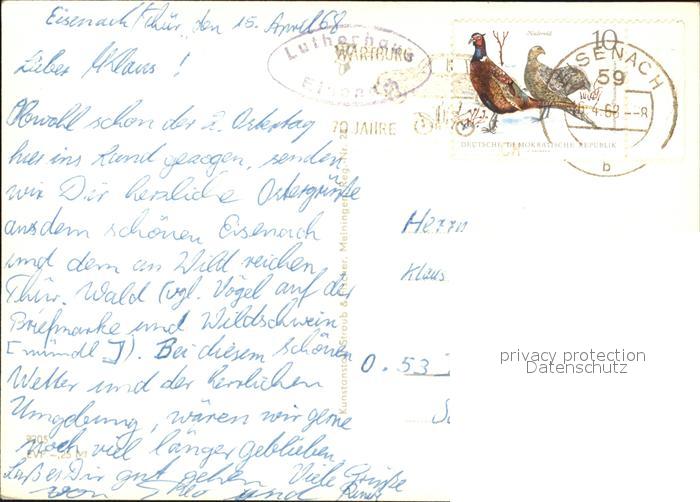 Eisenach/Thür, den 15. April 68
Lieber Klaus !
Obwohl schon der 2. Ostertag
hier ins Land gezogen, senden
wir Dir herzliche Ostergrüße
aus dem schönen Eisenach
und dem an Wild reichen
Thür. Wald (vgl. Vögel auf der
Briefmarke und Wildschwein
[mündl.]). Bei diesem schönen
Wetter und der herrlichen
Umgebung, wären wir gerne
noch viel länger geblieben.
Laß es Dir gut gehen Viele Grüße
von und
Lutherhaus
Eisenach
WARTBURG
70 JAHRE
10
DEUTSCHE DEMOKRATISCHE REPUBLIK
EISENACH
59
4.68--8
b
Kunstanstalt Straub & Fischer, Meiningen
Herrn
Klaus
0.53
privacy protection
Datenschutz